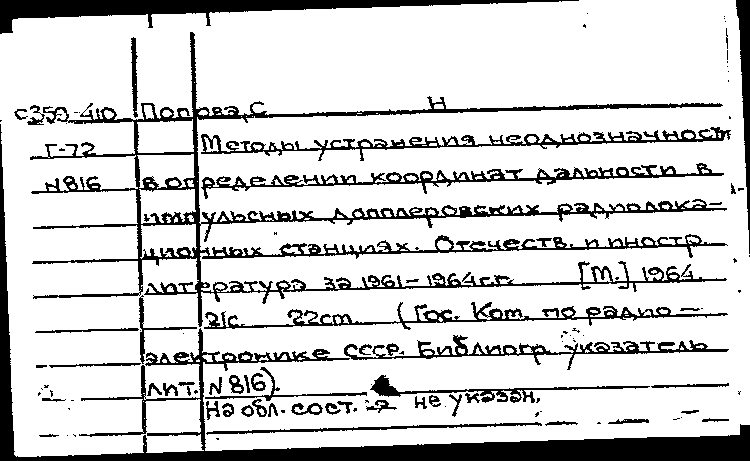 С350-410 Попова, С Н
Г-72 Методы устранения неоднозначности
N816 в определении координат дальности в
импульсных доплеровских радиолока-
ционных станциях. Отечеств. и иностр.
литература за 1961-1964гг. [М.], 1964.
21с. 22cm. (Гос. Ком. по радио-
электронике СССР. Библиогр. указатель
лит. N816).
На обл. сост. не указан.